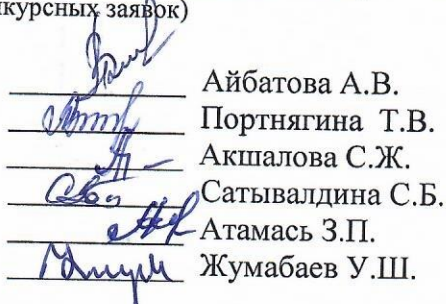 курсных заявок)
Айбатова А.В.
Портнягина Т.В.
Акшалова С.Ж.
Сатывалдина С.Б.
Атамась З.П.
Жумабаев У.Ш.